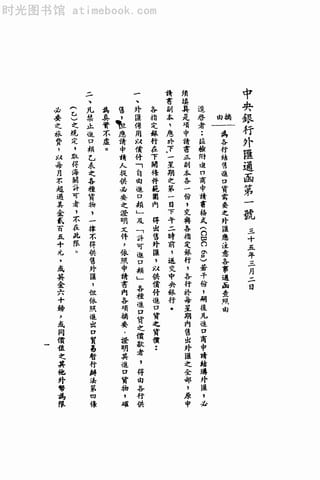 时光图书馆 atimebook.com
中央銀行外匯通函第一號
三十五年三月二日
摘由
為各行結售進口貨需要之外匯應注意各事通函查照由
逕啓者：茲檢附進口商申請書格式（CBC 6a）若干份，嗣後凡進口商申請結購外匯，必
須填具是項申請書正副本各一份，交與各指定銀行，各行於每星期內售出外匯之全部，原申
請書副本，應於下一星期之第一日下午二時前，送交中央銀行。
各指定銀行在下開條件範圍內　得出售外匯，以供償付進口貨之貨價：
一、外匯得用以償付「自由進口類」及「許可進口類」各種進口貨之價款者，得由各行供
售，但應請申請人提供必要之證明文件，依照申請書內各項摘要，證明其進口貨物，確
為真實不虛。
二、凡禁止進口類乙表之各種貨物，一律不得供售外匯，但依照進出口貿易暫行辦法第四條
（乙）之規定，取得海關許可者，不在此限。
必要之旅費，以每月不超過美金貳百五十元，或英金六十鎊，或同價值之其他外幣為限
一